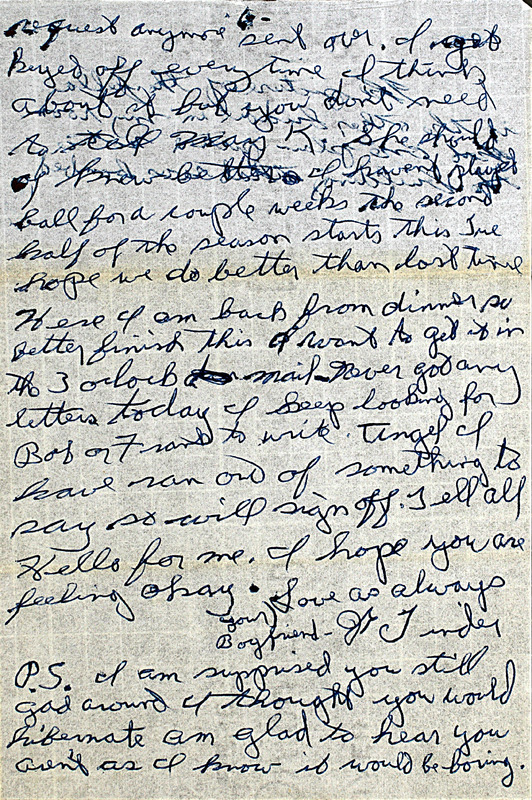 request anymore sent over. I get
keyed off every time I think
about it but you don't need
to
I know better I haven't played
ball for a couple weeks the second
half of the season starts this Tue
hope we do better than last time
Here I am back from dinner so
better finish this I want to get it in
the 3 oclock mail - Never got any
letters today I keep looking for
Bob or Frand to write. Angel I
have ran out of something to
say so will sign off. Tell all
Hello for me. I hope you are
feeling okay. Love as always
(your)
Boyfriend - Jr Tinder
P.S. I am supprised you still
gad around I thought you would
hibernate am glad to hear you
aren't as I know it would be boring.